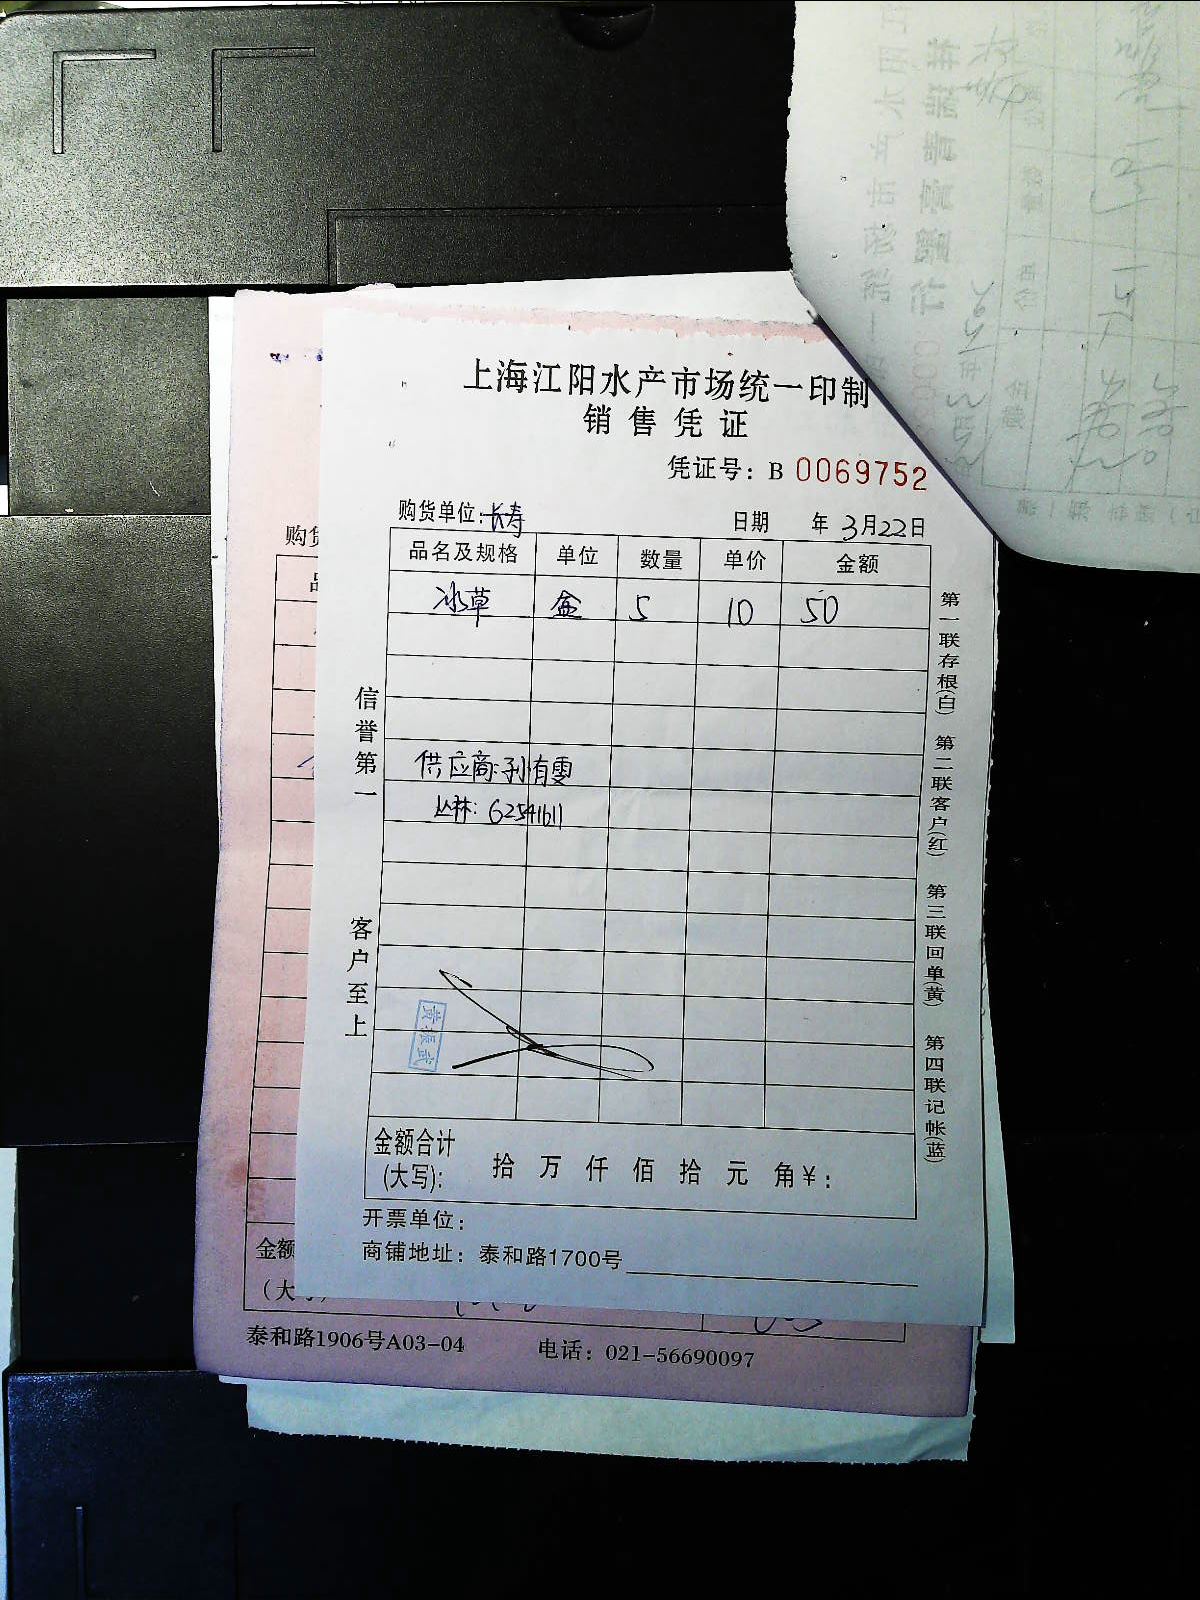 上海江阳水产市场统一印制
销售凭证
凭证号：B 0069752
购货单位：长寿 日期 年 3月22日
品名及规格 单位 数量 单价 金额
冰草 盒 5 10 50
供应商：孙有雯
丛林：62541611
信誉第一
客户至上
第一联存根(白) 第二联客户(红) 第三联回单(黄) 第四联记帐(蓝)
金额合计
(大写)： 拾 万 仟 佰 拾 元 角 ¥：
开票单位：
商铺地址：泰和路1700号
购货
金额
泰和路1906号A03-04 电话：021-56690097